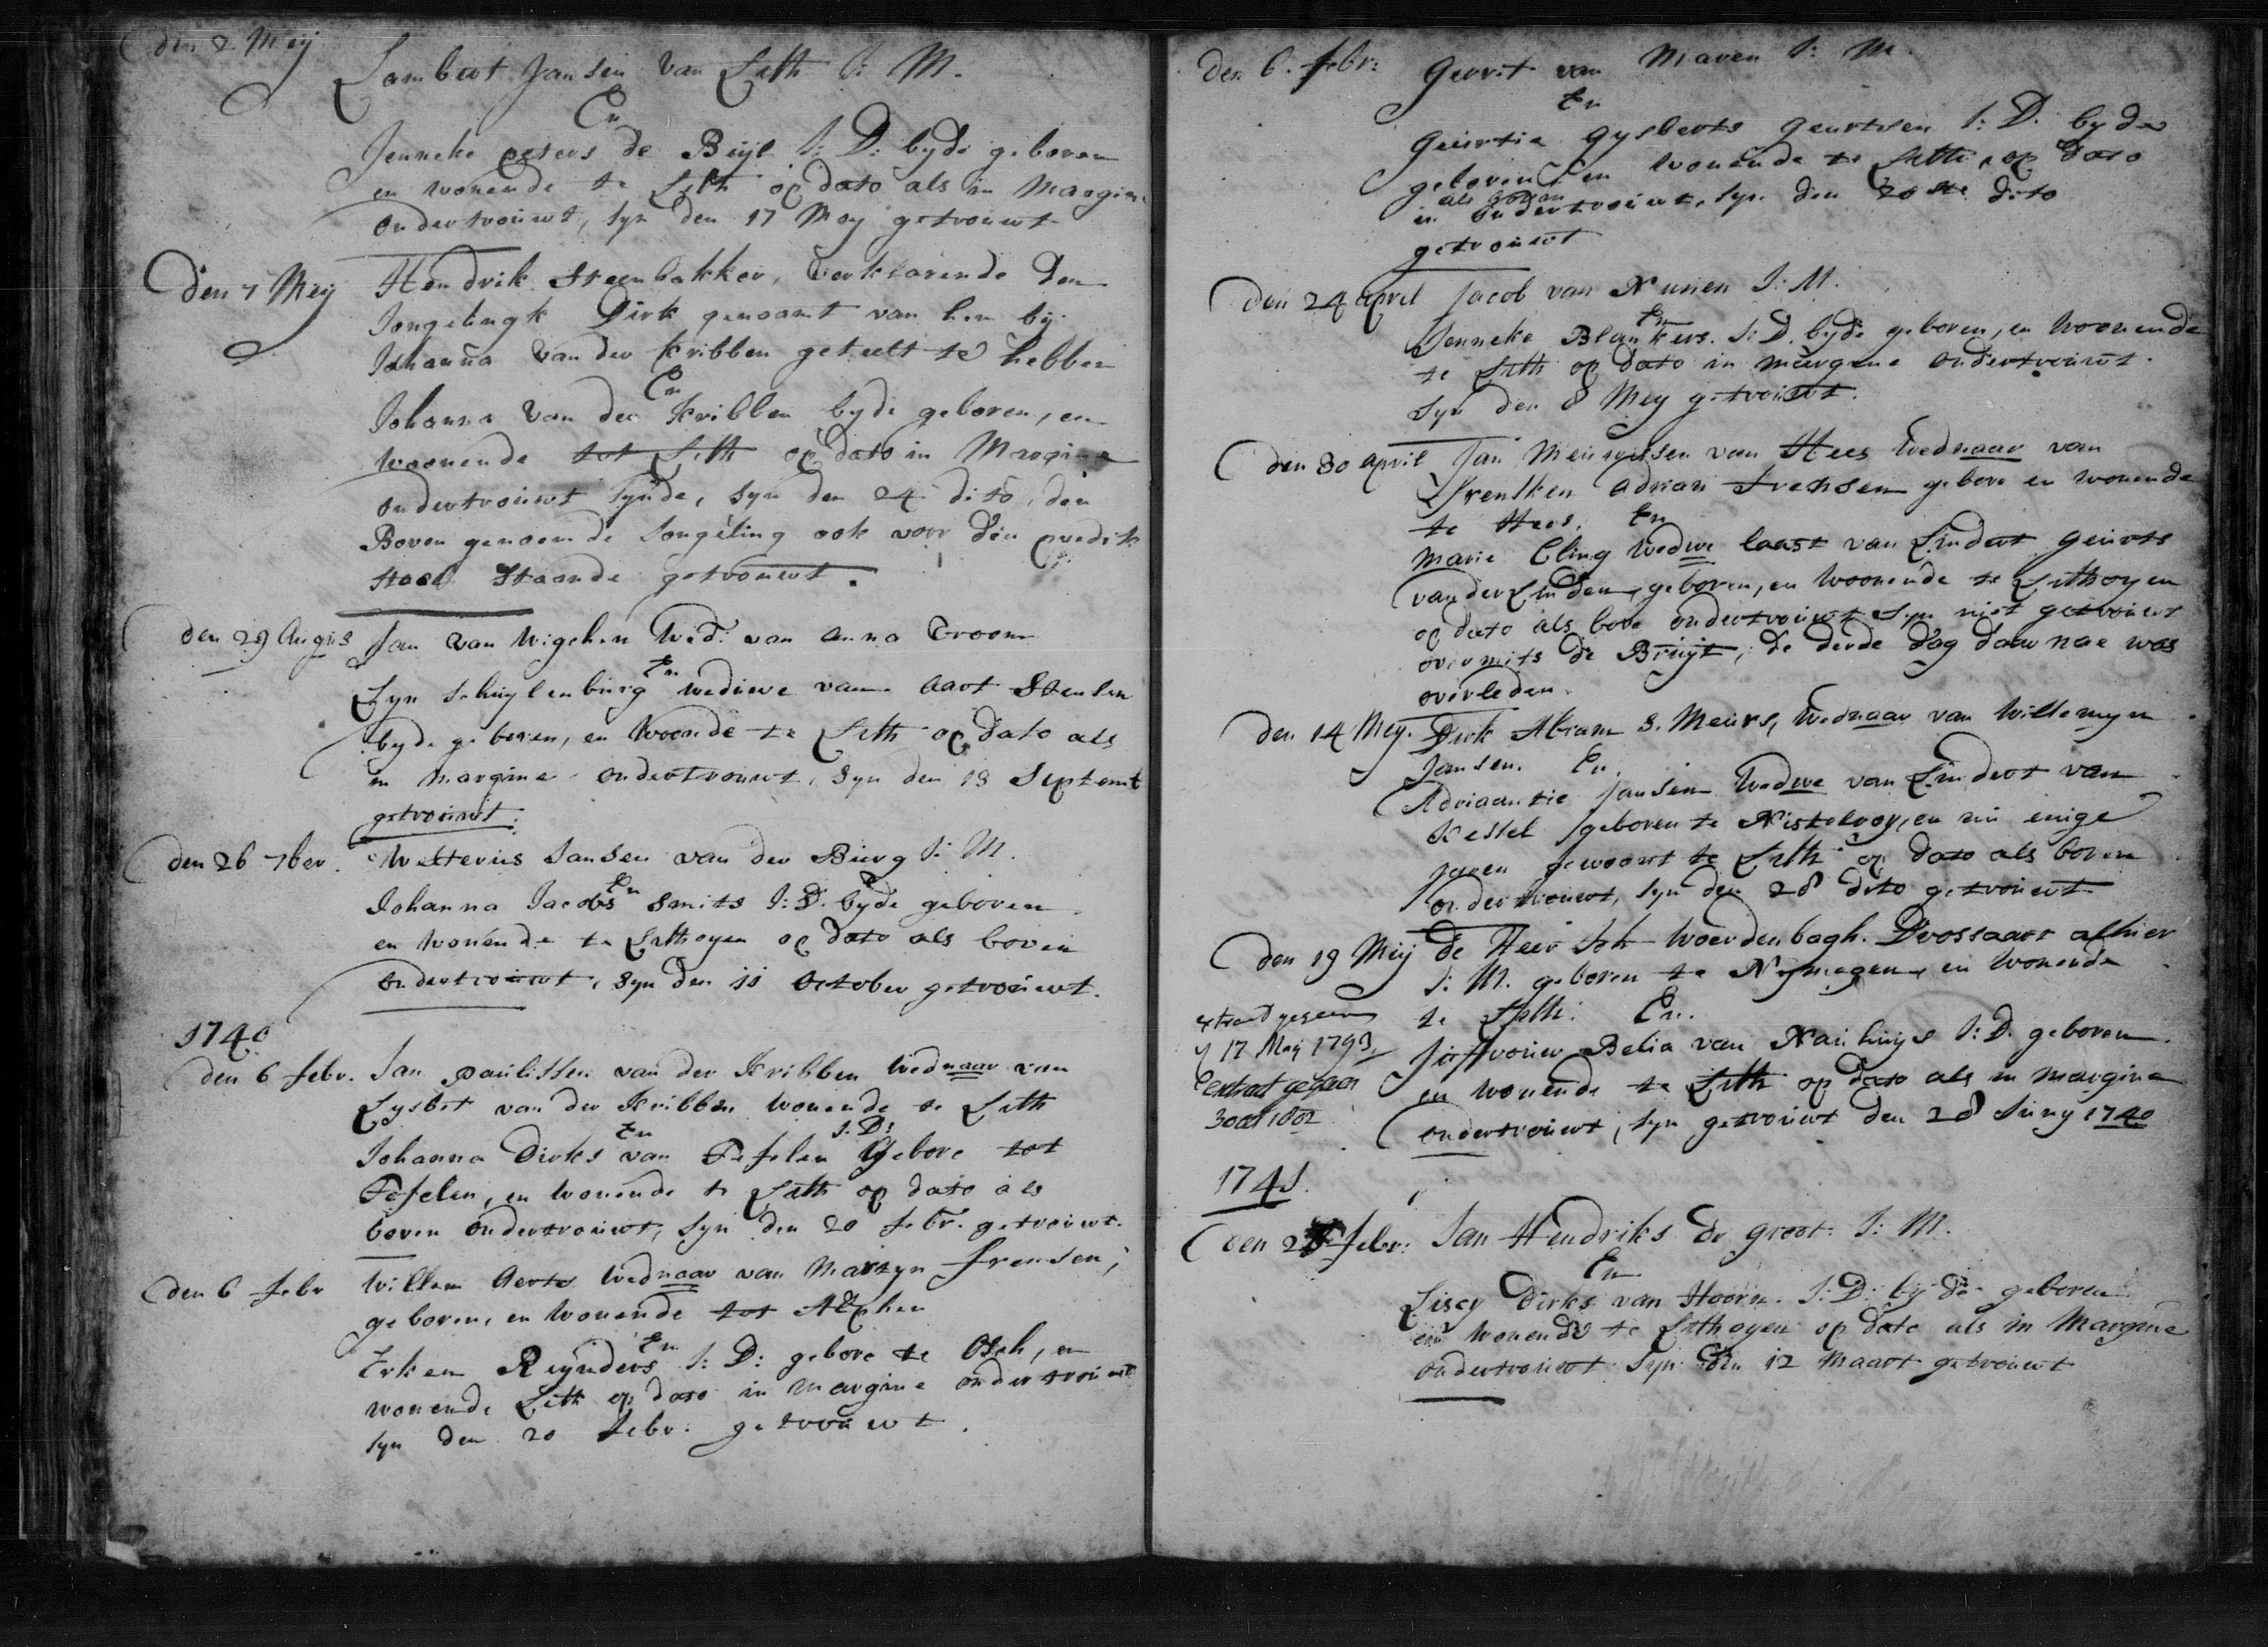 den 2 Meij
Lambert Jansen van Lith J: M.
En
Jenneke peters de Beijl J: D: byde geboren
en wonende te Lith op dato als in Margine
ondertrouwt, syn den 17 Mey getrouwt
den 7 Meij Hendrik Steenbakker, verklarende den
Jongelingk Dirk genaamt van hem bij
Johanna van der Kribben geteelt te hebben
En
Johanna van der Kribben byde geboren, en
woonende tot Lith op dato in Margine
ondertrouwt synde, syn den 24 dito, den
Boven genoemde Jongeling ook voor den predik
stoel staande getrouwt.
den 29 Augus Jan van Wigchen Wed: van Anna Croom
En
Lyn Schuylenburg wediewe van Aart Stensen
byde geboren, en Woonde te Lith op dato als
in margine ondertrouwt, syn den 13 Septemb
getrouwt.
den 26 7ber. Wolterus Jansen van der Burg J: M.
En
Johanna Jacobs Smits J: D. byde geboren
en wonende te Lithoyen op dato als boven
ondertrouwt, syn den 11 October getrouwt.
1740
den 6 febr. Jan paulissen van der Kribben Wednaar van
Lysbet van der Kribben wonende te Lith
En J. D:
Johanna Dirks van Tefelen Gebore tot
Tefelen, en wonende te Lith op dato als
boven ondertrouwt, syn den 20 febr. getrouwt.
den 6 febr Willem Aerts Wednaar van Martyn fransen,
geboren, en wonende tot Alphen
En
Erken Reynders J: D: gebore te Osch, en
wonende Lith op dato in margine ondertrouwt
syn den 20 febr. getrouwt.
den 6. febr: Gerrit van Maren J: M.
En
Geurtie Gysberts Geurtsen J: D. byde
geboren en wonende te Lith, op dato
als boven
in ondertrouwt, syn den 20ste dito
getrouwt
den 24 April Jacob van Nunen J: M.
En
Jenneke Blankers. J: D. byde geboren, en woonende
te Lith op dato in margine ondertrouwt.
syn den 8 Mey getrouwt.
den 30 April Jan Meingersen van Hees Wednaar van
Adrian gebore en wonende
te Hees. En
Marie Cling Wedwe laast van Lindert Geurts
van der Linden, geboren, en woonende te Lithoyen
op dato als bove ondertrouwt syn niet getrouwt
overmits de Bruyt, de derde dag daer nae was
overleden.
den 14 Mey. Dirk Abram S. Meurs, Wednaar van Willemyn
Jansen. En.
Adriaantie Jansen Wedwe van Lindert van
Kessel geboren te Nistelroy, en nu enige
jaren gewoont te Lith op dato als boven
ondertrouwt, syn den 28 dito getrouwt
den 19 Meij de Heer Joh Woerdenbagh. Drossaart alhier
J: M. geboren te Nymegen, en wonende
extract gegeven te Lith. En.
17 Mey 1793 Juffrouw Belia van Nauhuys J: D. geboren
extract gegeven en wonende te Lith op dato als in margine
30 oct 1802 ondertrouwt, syn getrouwt den 28 Juny 1740
1741.
den 25 febr: Jan Hendriks de Groot J: M.
En
Lisey Dirks van Hoorn. J: D: byde geboren
en wonende te Lithoyen op dato als in Margine
ondertrouwt syn den 12 Maart getrouwt